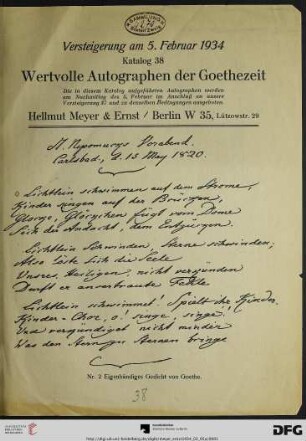 Versteigerung am 5. Februar 1934
Katalog 38
Wertvolle Autographen der Goethezeit
Die in diesem Katalog aufgeführten Autographen werden
am Nachmittag des 5. Februar im Anschluß an unsere
Versteigerung 37 und zu denselben Bedingungen ausgeboten.
Hellmut Meyer & Ernst / Berlin W 35, Lützowstr. 29
St. Nepomucks Vorabend.
Carlsbad, d. 15 May 1820.
Lichtlein schwimmen auf dem Strome,
Kinder singen auf der Brücken,
Glocke, Glöckchen fügt vom Dome
Sich der Andacht, dem Entzücken.
Lichtlein schwinden, Sterne schwinden;
Also löste sich die Seele
Unsres Heiligen, nicht verkünden
Durft er anvertraute Fehle
Lichtlein schwimmet! Spielt ihr Kinder,
Kinder-Chor, o! singe, singe!
Und verkündiget nicht minder
Was den Stern zu Sternen bringe
Nr. 2 Eigenhändiges Gedicht von Goethe.
38
DFG